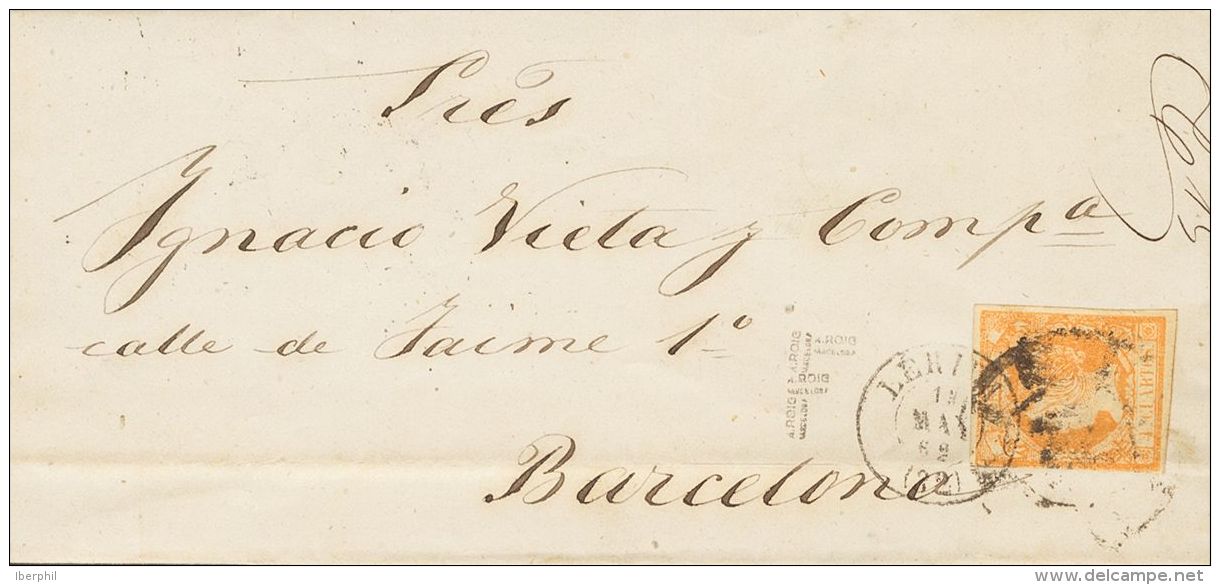 Sres
Ignacio Vieta y Compª
calle de Jaime 1º
Barcelona
A.ROIG
BARCELONA
A.ROIG
BARCELONA
A.ROIG
BARCELONA
A.ROIG
BARCELONA
Iberphil
delcampe.net